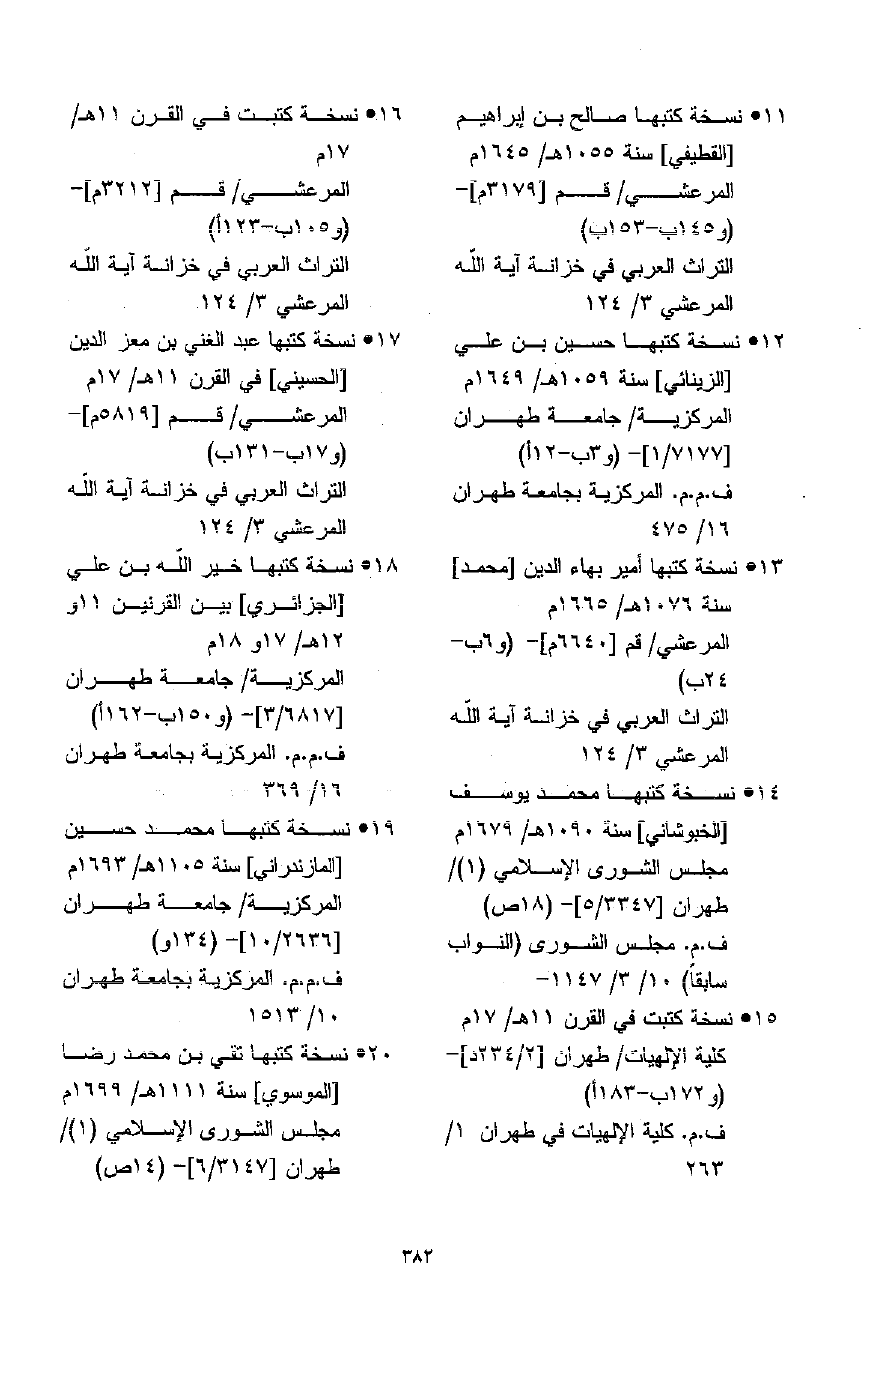 ١١• نسخة كتبها صالح بن إبراهيم
[القطيفي] سنة ١٠٥٥هـ/ ١٦٤٥م
المرعشي/ قم [٣١٧٩م]-
(و١٤٥ب-١٥٣ب)
التراث العربي في خزانة آية اللّه
المرعشي ٣/ ١٢٤
١٢• نسخة كتبها حسين بن علي
[الزينائي] سنة ١٠٥٩هـ/ ١٦٤٩م
المركزية/ جامعة طهران
[١/٧١٧٧]- (و٣ب-١٢أ)
ف.م.م. المركزية بجامعة طهران
١٦/ ٤٧٥
١٣• نسخة كتبها أمير بهاء الدين [محمد]
سنة ١٠٧٦هـ/ ١٦٦٥م
المرعشي/ قم [٦٦٤٠م]- (و٦ب-
٢٤ب)
التراث العربي في خزانة آية اللّه
المرعشي ٣/ ١٢٤
١٤• نسخة كتبها محمد يوسف
[الخبوشاني] سنة ١٠٩٠هـ/ ١٦٧٩م
مجلس الشورى الإسلامي (١)/
طهران [٥/٣٣٤٧]- (١٨ص)
ف.م. مجلس الشورى (النواب
سابقاً) ١٠/ ٣/ ١١٤٧-
١٥• نسخة كتبت في القرن ١١هـ/ ١٧م
كلية الإلهيات/ طهران [٢٣٤/٢د]-
(و١٧٢ب-١٨٣أ)
ف.م. كلية الإلهيات في طهران ١/
٢٦٣
١٦• نسخة كتبت في القرن ١١هـ/
١٧م
المرعشي/ قم [٣٢١٢م]-
(و١٠٥ب-١٢٣أ)
التراث العربي في خزانة آية اللّه
المرعشي ٣/ ١٢٤
١٧• نسخة كتبها عبد الغني بن معز الدين
[الحسيني] في القرن ١١هـ/ ١٧م
المرعشي/ قم [٥٨١٩م]-
(و١٧ب-١٣١ب)
التراث العربي في خزانة آية اللّه
المرعشي ٣/ ١٢٤
١٨• نسخة كتبها خير اللّه بن علي
[الجزائري] بين القرنين ١١و
١٢هـ/ ١٧و ١٨م
المركزية/ جامعة طهران
[٣/٦٨١٧]- (و١٥٠ب-١٦٢أ)
ف.م.م. المركزية بجامعة طهران
١٦/ ٣٦٩
١٩• نسخة كتبها محمد حسين
[المازندراني] سنة ١١٠٥هـ/ ١٦٩٣م
المركزية/ جامعة طهران
[١٠/٢٦٣٦]- (١٣٤و)
ف.م.م. المركزية بجامعة طهران
١٠/ ١٥١٣
٢٠• نسخة كتبها تقي بن محمد رضا
[الموسوي] سنة ١١١١هـ/ ١٦٩٩م
مجلس الشورى الإسلامي (١)/
طهران [٦/٣١٤٧]- (١٤ص)
٣٨٢